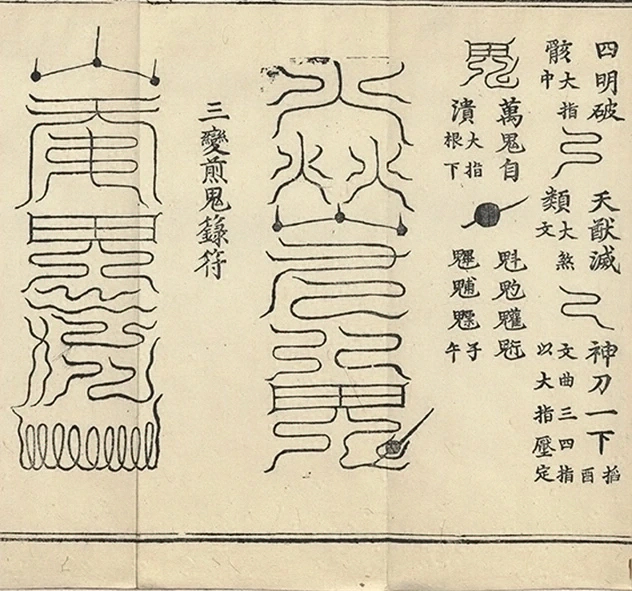 四明破
骸 大指中
天猷滅
類 大煞文
神刀一下 搯酉
文曲三四指
以大指壓定
萬鬼自
潰 大指根下
魁魡
魒 子午
三變煎鬼籙符